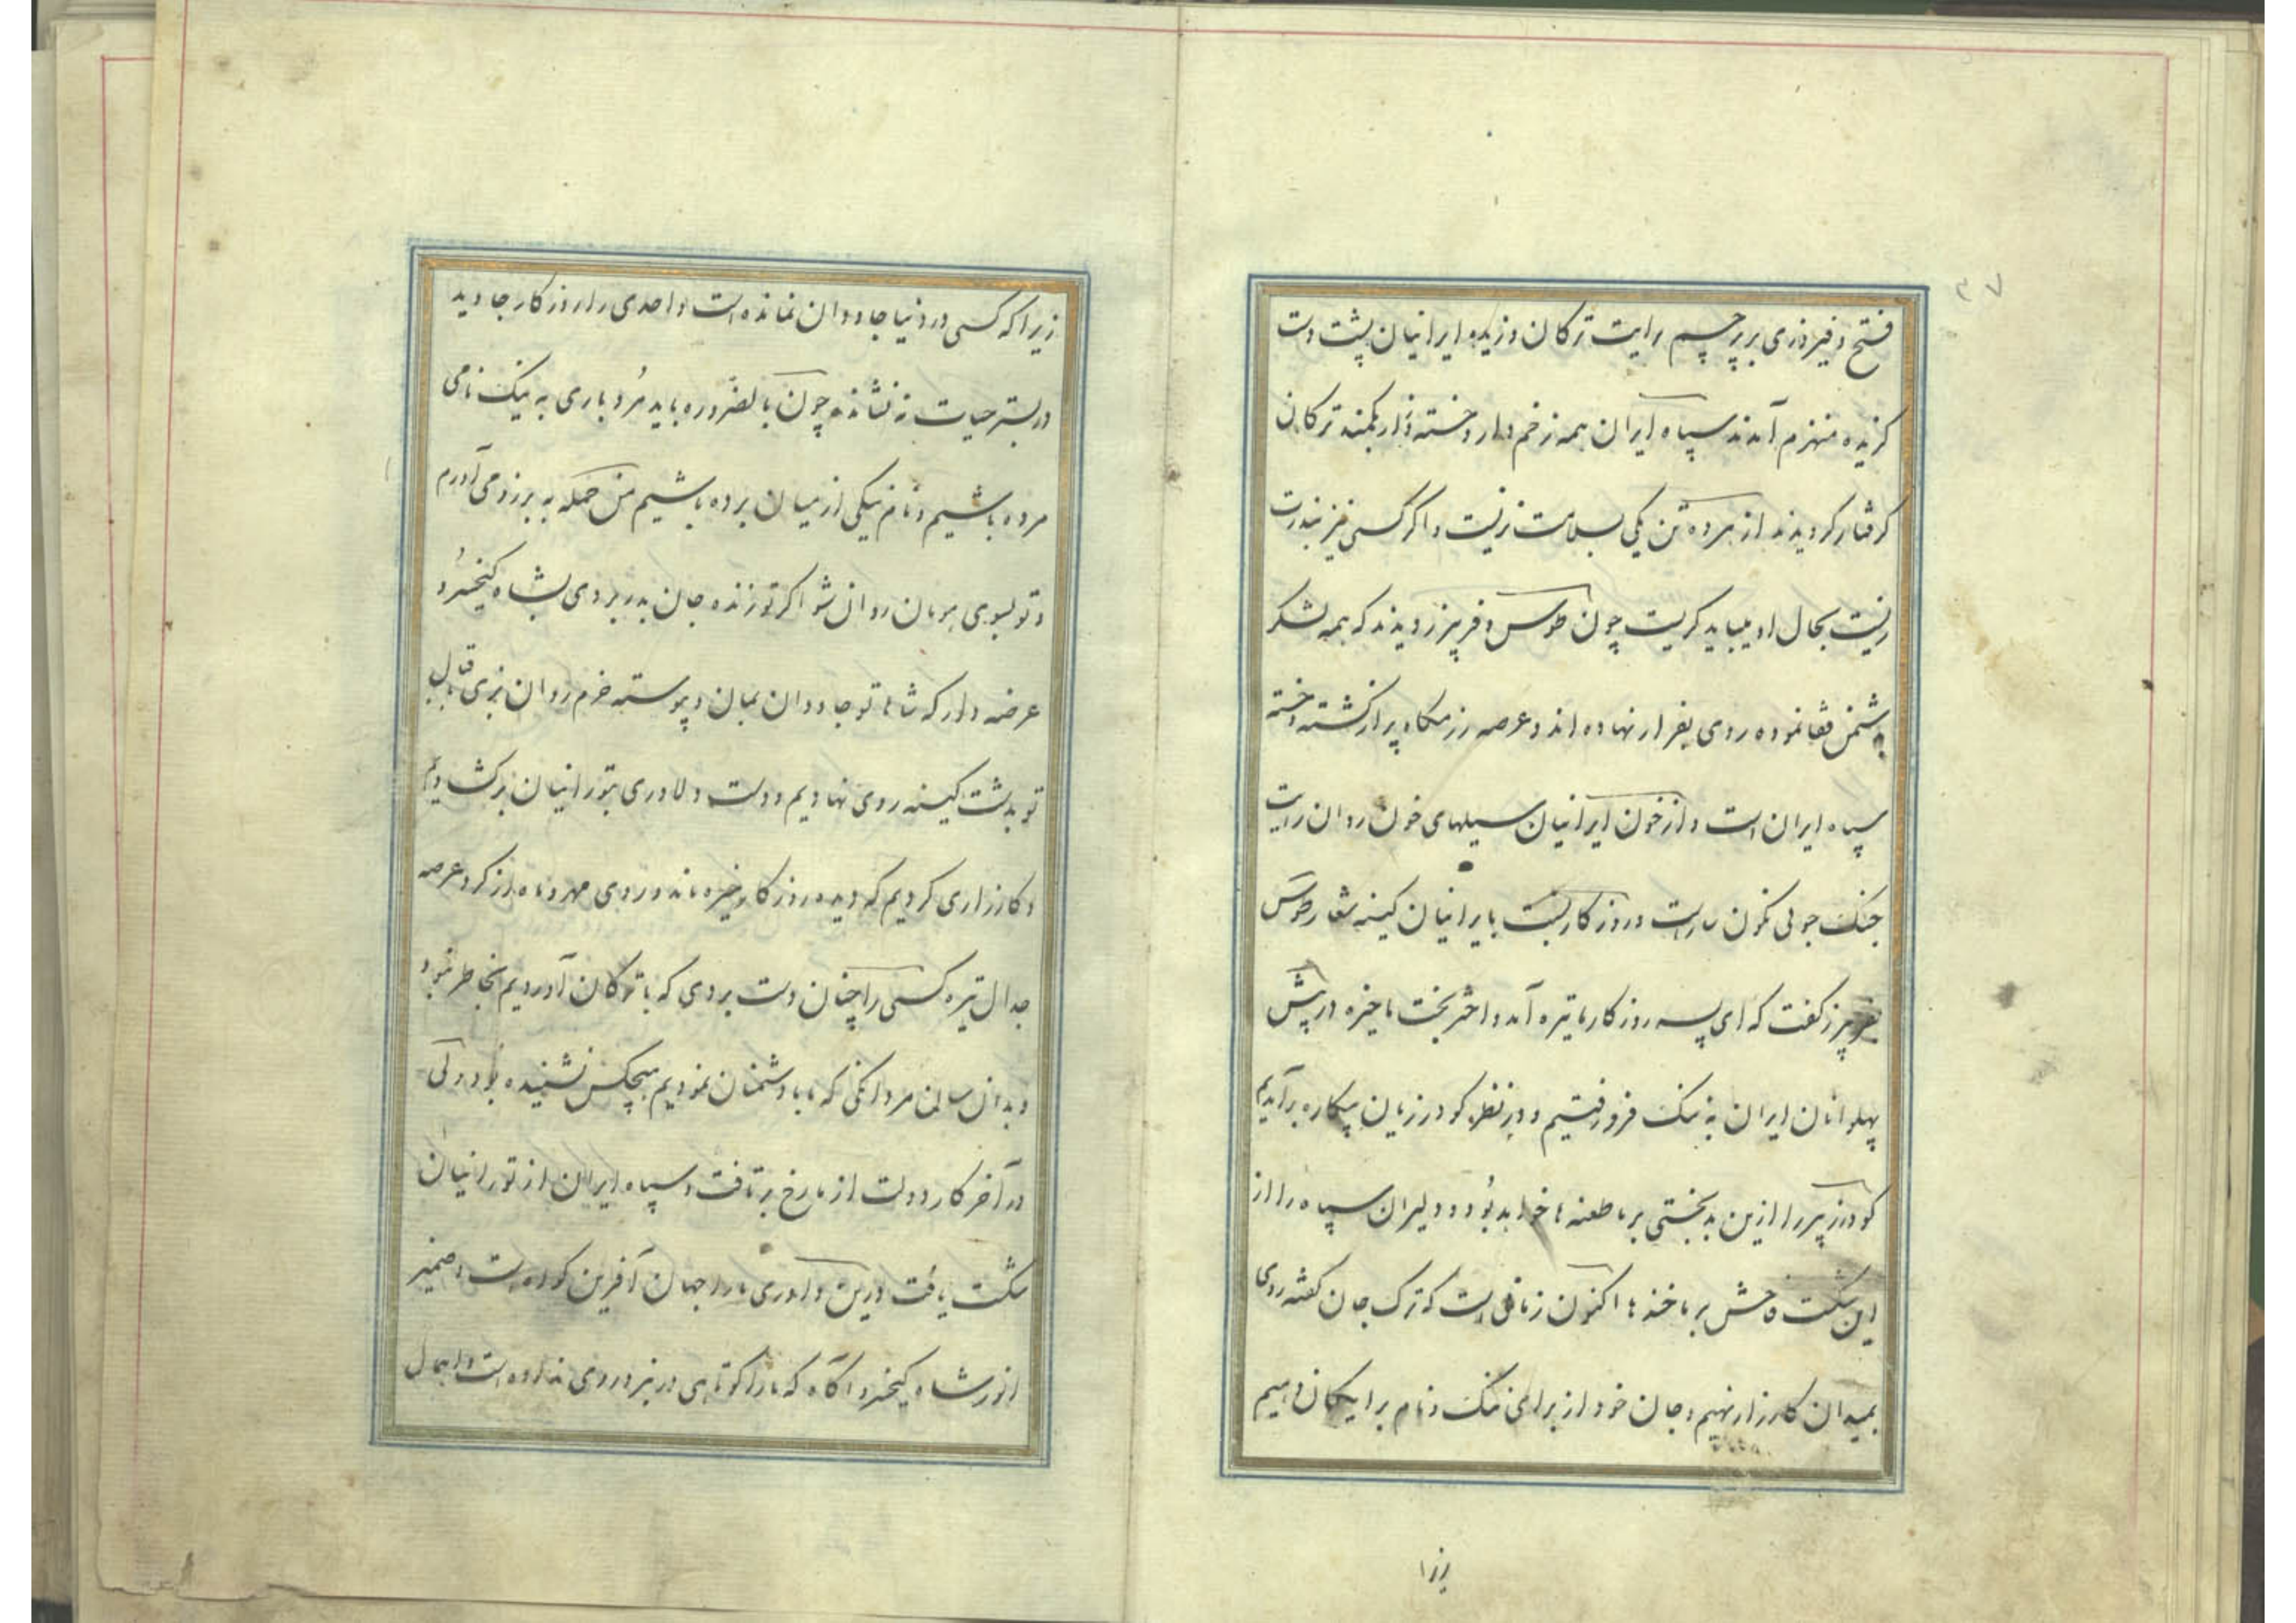 ۳۷
فتح و فیروزی بر پرچم رایت ترکان وزیده ایرانیان پشت دست
گزیده منهزم آمدند سپاه ایران همه زخم دار و خسته و زار بکمند ترکان
گرفتار گردیدند از هر ده تن یکی بسلامت نزیست و اگر کسی نیز بندرت
زیست بحال او میباید گریست چون طوس و فریبرز دیدند که همه لشکر
بدشمن قفا نموده روی بفرار نهاده اند و عرصه رزمگاه پر از کشته و خسته
سپاه ایران است و از خون ایرانیان سیلهای خون روان رایت
جنگ جوئی نگون سارست و روزگار بست با ایرانیان کینه شعار طوس
بفریبرز گفت که ای پسر روزگار ما تیره آمد و اختر بخت ما خیره در پیش
پهلوانان ایران به ننگ فرو رفتیم و در نظر گودرزیان بیکاره برآمدیم
گودرز پیر را ازین بدبختی بر ما طعنه ها خواهد بود و دلیران سپاه را از
این شکست فاحش بر ما خنده ها اکنون زمانی است که ترک جان گفته روی
بمیدان کارزار نهیم و جان خود از برای ننگ و نام برایگان دهیم
زیرا
زیرا که کسی در دنیا جاودان نمانده است و احدی را روزگار جاوید
در بستر حیات نه نشانده چون بالضروره باید مرد باری به نیک نامی
مرده باشیم و نام نیکی از میان برده باشیم من حمله به برزو می آورم
و تو بسوی هومان روان شو اگر تو زنده جان بدر بردی بشاه کیخسرو
عرضه دار که شاها تو جاودان بمان و پیوسته خرم روان بزی قابل
تو بدشت کینه روی نهادیم و دست دلاوری بتورانیان برگشادیم
و کارزاری کردیم که دیده روزگار خیره ماند و روی مهر و ماه از گرد عرصه
جدال تیره کسی را چنان دست بردی که با ترکان آوردیم بخاطر نبود
و بدان سان مردانگی که ما با دشمنان نمودیم هیچکس نشنیده بود ولی
در آخر کار دولت از ما رخ برتافت و سپاه ایران از تورانیان
شکست یافت درین داوری ما را جهان آفرین گواه است و ضمیر
انور شاه کیخسرو آگاه که ما را کوتاهی در نبرد روی نداده است و اهمال